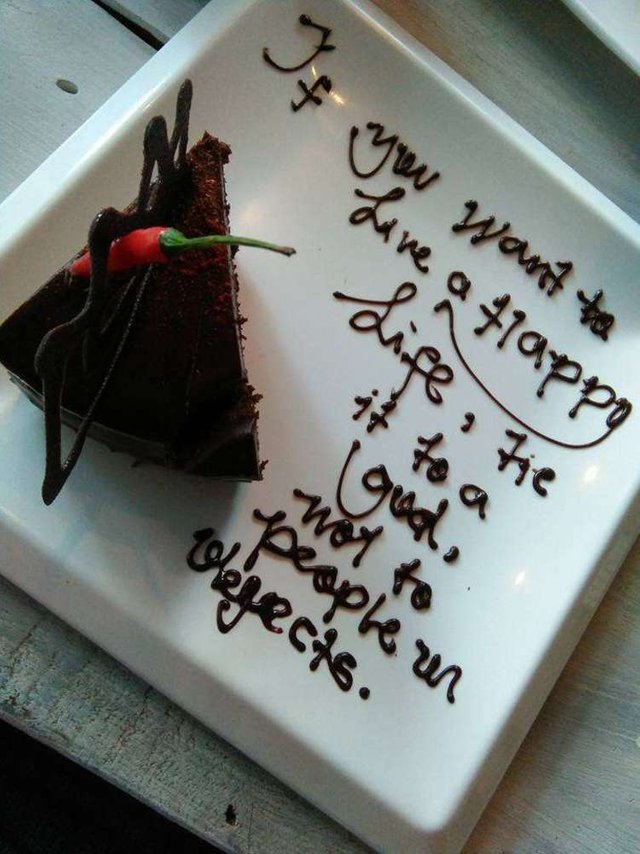 If
you Want to
Live a Happy
Life, tie
it to a
Goal,
not to
people or
objects.